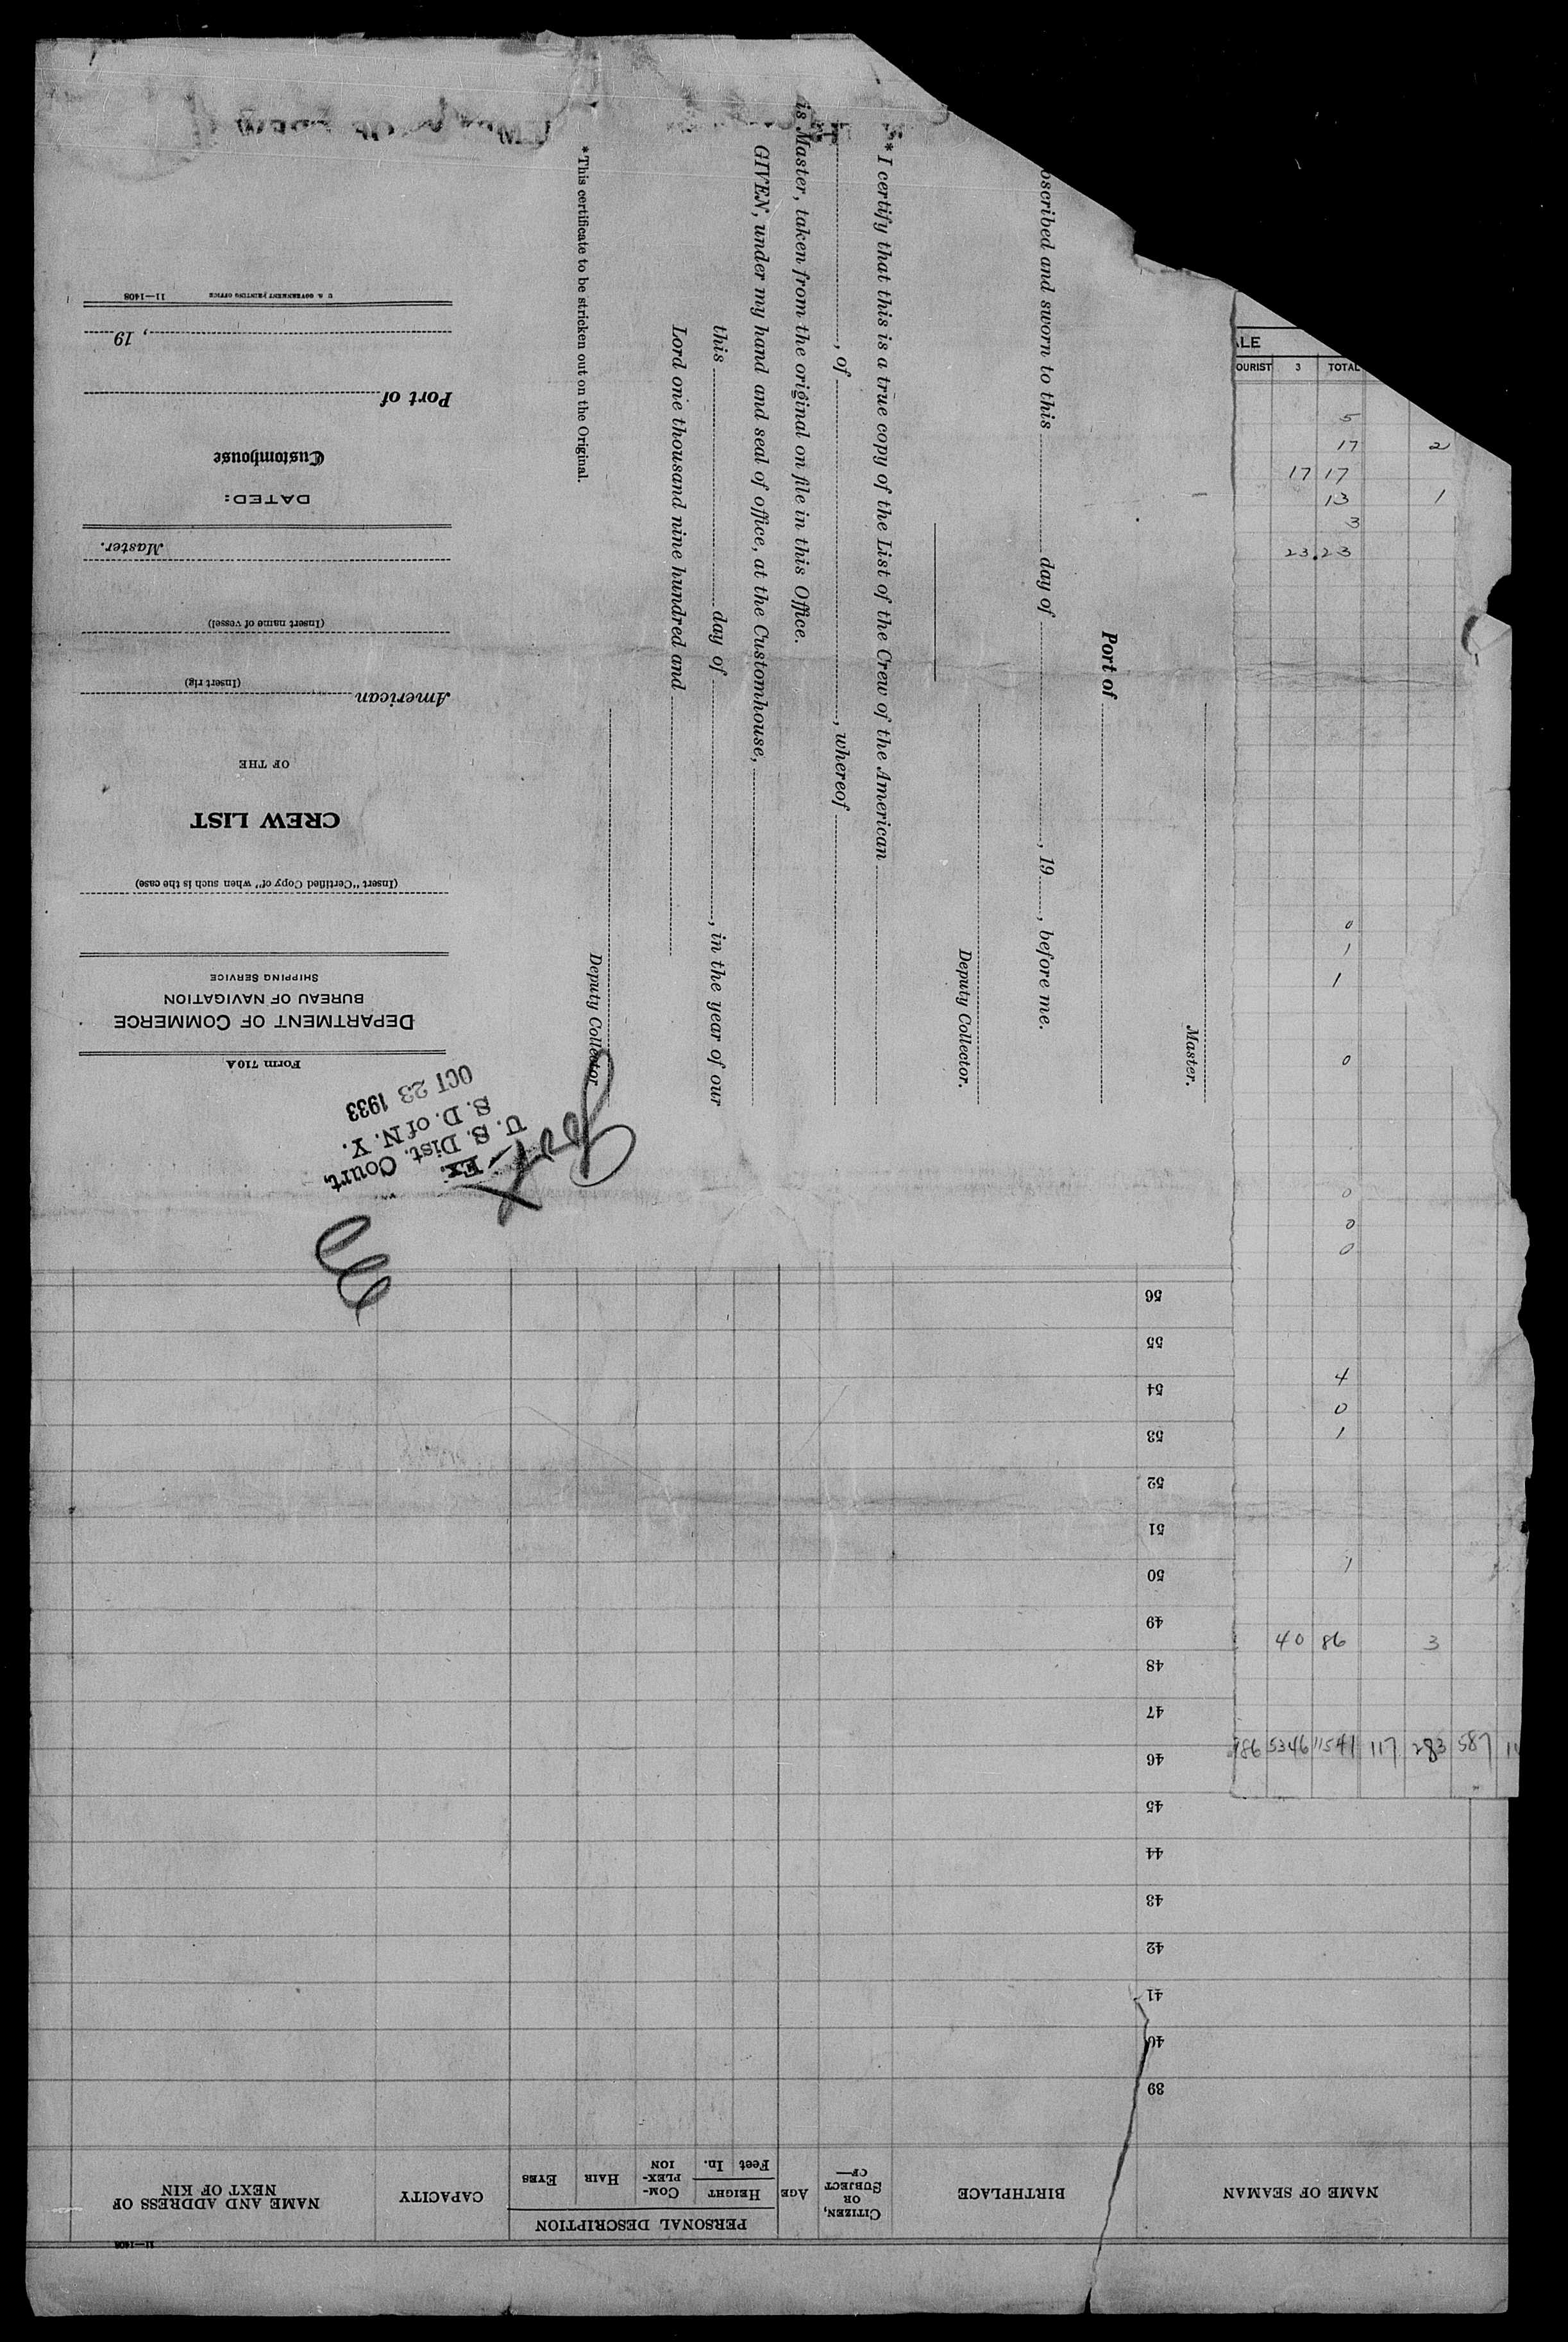 Form 710A
DEPARTMENT OF COMMERCE
BUREAU OF NAVIGATION
SHIPPING SERVICE
(Insert "Certified Copy of" when such is the case)
CREW LIST
OF THE
American
(Insert rig)
(Insert name of vessel)
Master.
DATED:
Customhouse
Port of
, 19
U. S. GOVERNMENT PRINTING OFFICE 11—1408
U. S. Dist. Court,
S. D. of N. Y.
OCT 23 1933
Ex.
Master.
Port of
bscribed and sworn to this day of , 19 , before me.
Deputy Collector.
* I certify that this is a true copy of the List of the Crew of the American
, of , whereof
is Master, taken from the original on file in this Office.
GIVEN, under my hand and seal of office, at the Customhouse,
this day of , in the year of our
Lord one thousand nine hundred and
Deputy Collector.
*This certificate to be stricken out on the Original.
ALE
OURIST 3 TOTAL
5
17 2
17 17
13 1
3
23 23
0
1
1
0
0
0
0
4
0
1
1
40 86 3
986 5346 11541 117 283 587
11—1408
NAME OF SEAMAN
BIRTHPLACE
CITIZEN, OR SUBJECT OF—
AGE
PERSONAL DESCRIPTION
HEIGHT
Feet In.
COMPLEXION
HAIR
EYES
CAPACITY
NAME AND ADDRESS OF NEXT OF KIN
39
40
41
42
43
44
45
46
47
48
49
50
51
52
53
54
55
56